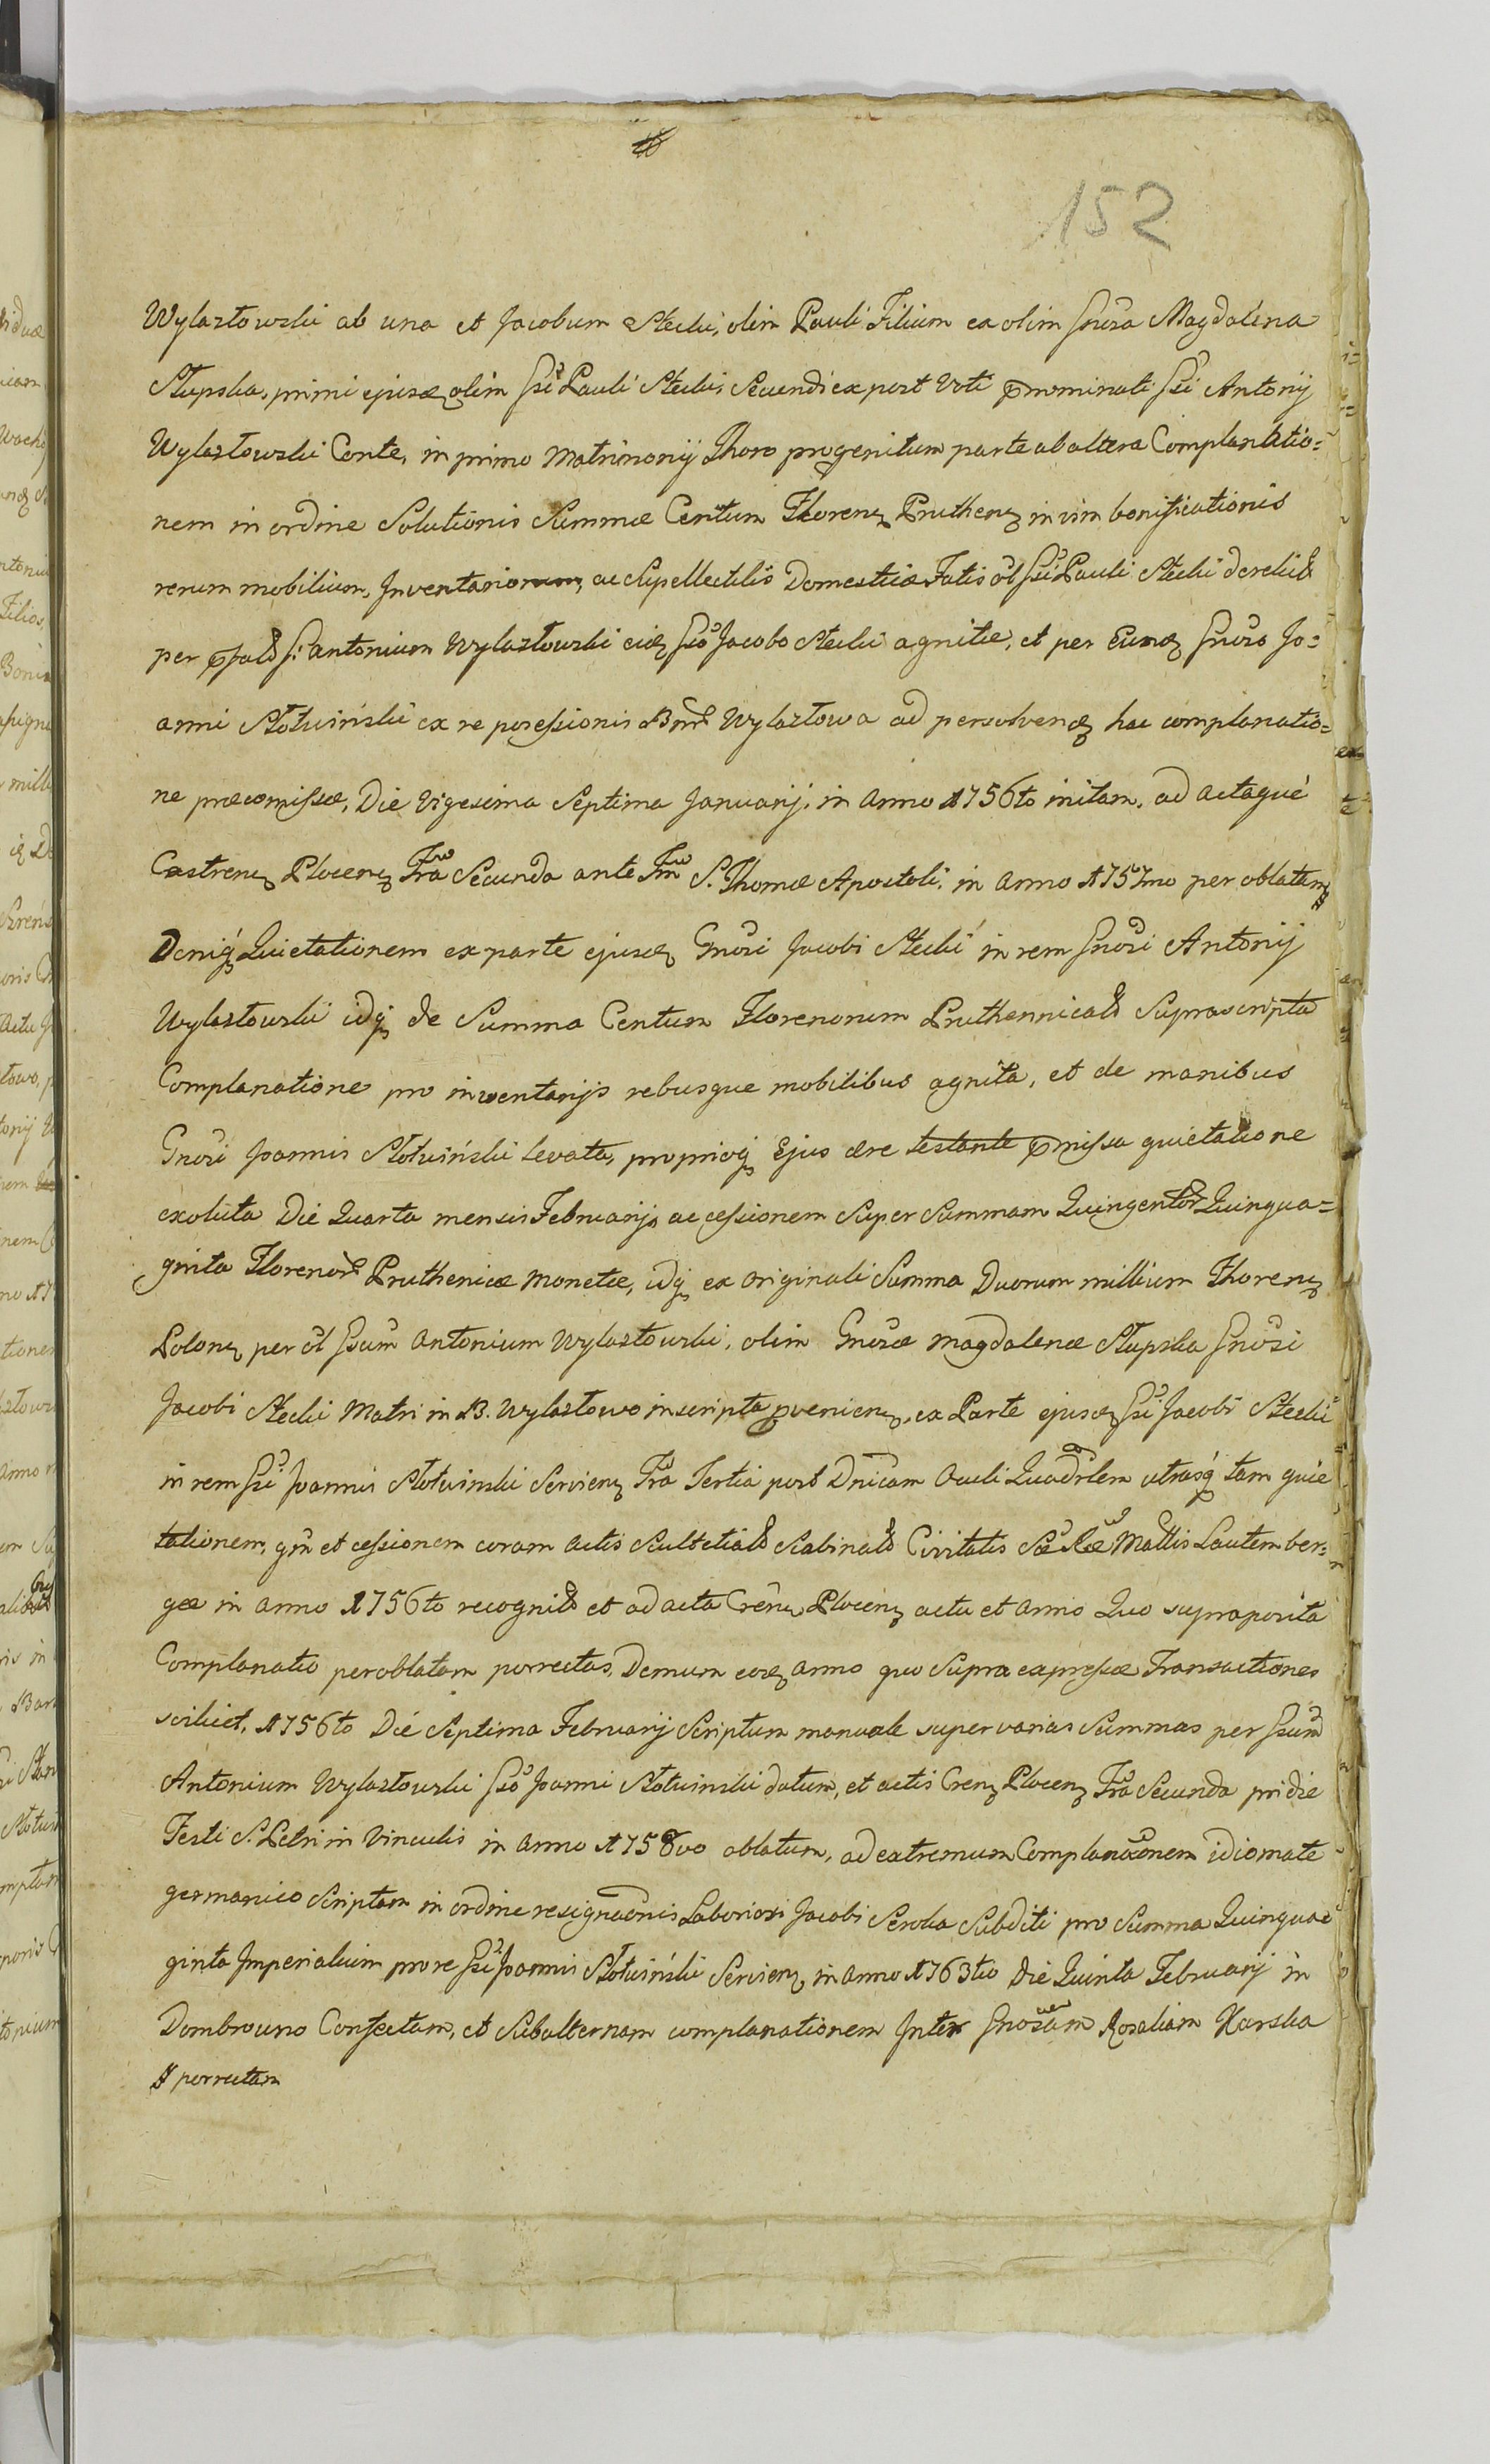 152
Wylazłowski ab una et Jacobum Stecki, olim Pauli Filium ex olim Gnrsa Magdalena
Słupska, primi ejusd olim Gsi Pauli Stecki, Secundi ex post Voti pnominati Gsi Antonij
Wylazłowski Conte, in primo Matrimonij Thoro progenitum parte ab altera Complanatio=
nem in ordine Solutionis Summæ Centum Floren Pruthen in vim bonificationis
rerum mobilium, Inventariorum, ac Supellectilis Domesticæ Fatis ol Gsi Pauli Stecki derelict
per pfat G. Antonium Wylazłowski eid Gso Jacobo Stecki agnitæ, et per Eund Gnrso Jo=
anni Słotwiński ex re possessionis Bnr Wylazłowa ad persolvend hac complanatio=
ne præcomissæ, Die Vigesima Septima Januarij in Anno 1756to initam, ad Actaque
Castren Plocen Fra Secunda ante Fm S. Thomæ Apostoli in Anno 1757mo per oblatam
Deniq Quietationem ex parte ejusd Gnrsi Jacobi Stecki in rem Gnrsi Antonij
Wylazłowski idq de Summa Centum Florenorum Pruthennical Suprascripta
Complanatione pro inventarijs rebusque mobilibus agnita, et de manibus
Gnrsi Joannis Słotwiński levata, proprioq Ejus ære testante pmissa quietatione
exoluta Die Quarta mensis Februarij, ac cessionem Super Summam Quingentor Quinqua=
ginta Florenor Prutheniciæ Monetæ, idq ex Originali Summa Duorum millium Floren
Polon per ol Gsum Antonium Wylazłowski, olim Gnrsæ Magdalenæ Słupska Gnrsi
Jacobi Stecki Matri in B. Wylazłowo inscripta pvenien, ex Parte ejusd Gsi Jacobi Stecki
in rem Gsi Joannis Słotwinski Servien Fra Tertia post Dnicam Oculi Quadrlem utrasq tam quie
tationem, qm et cessionem coram Actis Scultetial Scabinal Civitatis Sæ Ræ Mattis Lautember=
gæ in Anno 1756to recognit et ad acta Cren Plocen actu et Anno Quo supraposita
Complanatio per oblatam porrectas, Demum eod anno quo Supra expressæ Transactiones
scilicet, 1756to Die Septima Februarij Scriptum manuale super varias Summas per Gsum
Antonium Wylazłowski Gso Joanni Słotwinski datum, et actis Cren Plocen Fra Secunda pridie
Festi S. Petri in Vinculis in Anno 1758vo oblatum, ad extremum Complanaonem idiomate
germanico Scriptam in ordine resignaonis Laboriosi Jacobi Seroka Subditi pro Summa Quinqua
ginta Imperialium pro re Gsi Joannis Słotwiński Servien in Anno 1763tio Die Quinta Februarij in
Dombrowno Confectam, et Subalternam complanationem Inter Gnrsam Rosaliam Karska
# porrectam